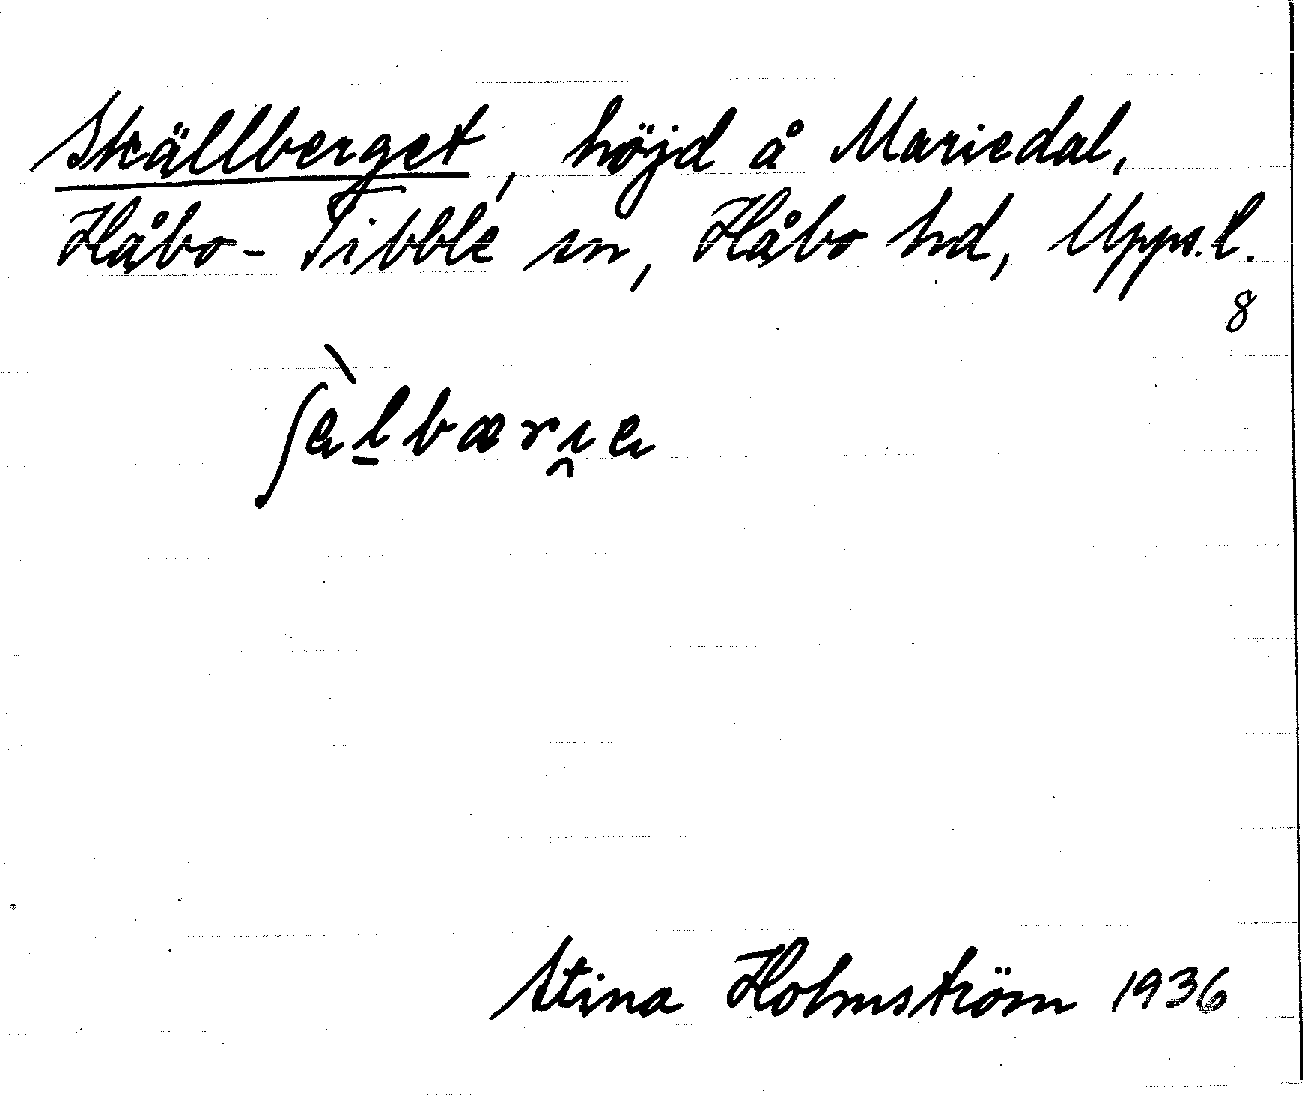 Skällberget, höjd å Mariedal,
Håbo-Tibble sn, Håbo hd, Upps. l.
8
Stina Holmström 1936